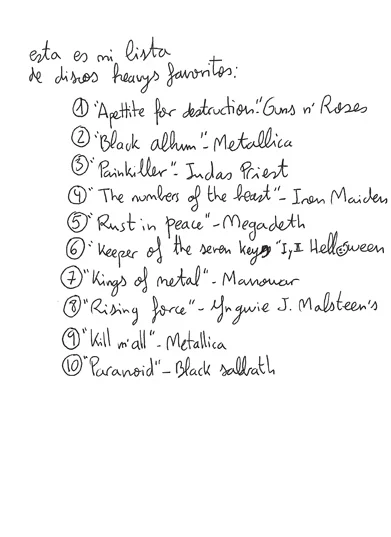 esta es mi lista
de discos heavys favoritos:
① "Apettite for destruction". Guns n' Roses
② "Black album" - Metallica
③ "Painkiller" - Judas Priest
④ "The numbers of the beast" - Iron Maiden
⑤ "Rust in peace" - Megadeth
⑥ "Keeper of the seven keys" I y II Helloween
⑦ "Kings of metal" - Manowar
⑧ "Rising force" - Yngwie J. Malsteen's
⑨ "Kill m'all" - Metallica
⑩ "Paranoid" - Black sabbath